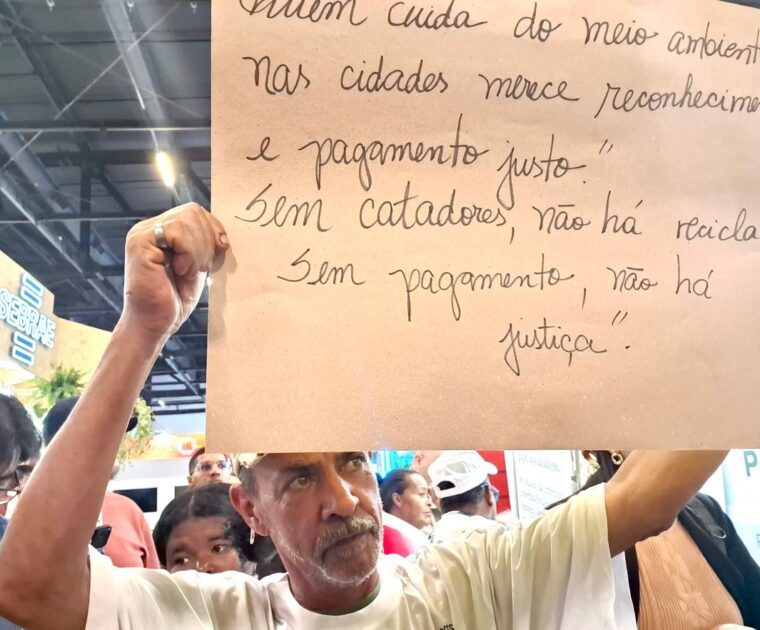 Quem cuida do meio ambient
nas cidades merece reconhecime
e pagamento justo."
Sem catadores, não há recicla
Sem pagamento, não há
justiça".
SEBRAE